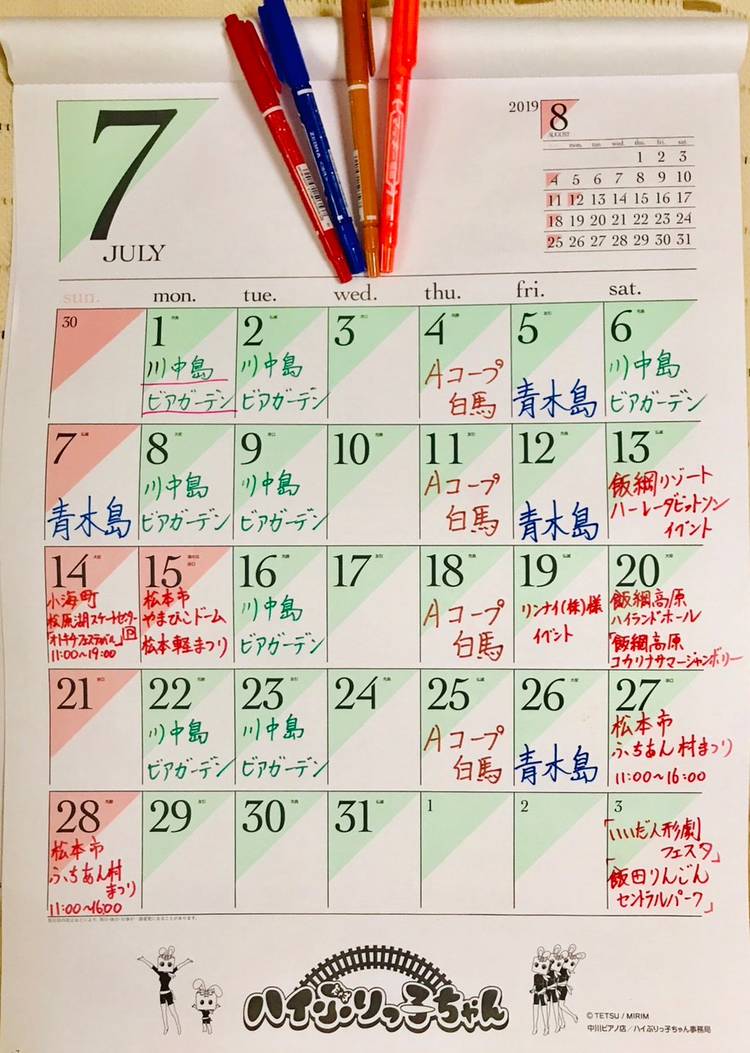 7
JULY
2019
8
AUGUST
mon. tue. wed. thu. fri. sat.
1 2 3
4 5 6 7 8 9 10
11 12 13 14 15 16 17
18 19 20 21 22 23 24
25 26 27 28 29 30 31
sun. mon. tue. wed. thu. fri. sat.
30
1
川中島
ビアガーデン
2
川中島
ビアガーデン
3
4
Aコープ
白馬
5
青木島
6
川中島
ビアガーデン
7
青木島
8
川中島
ビアガーデン
9
川中島
ビアガーデン
10
11
Aコープ
白馬
12
青木島
13
飯綱リゾート
ハーレーダビットソン
イベント
14
小海町
松原湖スケートセンター
11:00~19:00
15
松本市
やまびこドーム
松本軽まつり
16
川中島
ビアガーデン
17
18
Aコープ
白馬
19
リンナイ(株)様
イベント
20
飯綱高原
ハイランドホール
「飯綱高原
コカリナサマージャンボリー
21
22
川中島
ビアガーデン
23
川中島
ビアガーデン
24
25
Aコープ
白馬
26
青木島
27
松本市
ふぃちあん村まつり
11:00~16:00
28
松本市
ふぃちあん村
まつり
11:00~16:00
29
30
31
1
2
3
「いいだ人形劇
フェスタ」
「飯田りんごん
セントラルパーク」
ハイぶりっ子ちゃん
©TETSU/MIRIM
中川ピアノ店/ハイぶりっ子ちゃん事務局